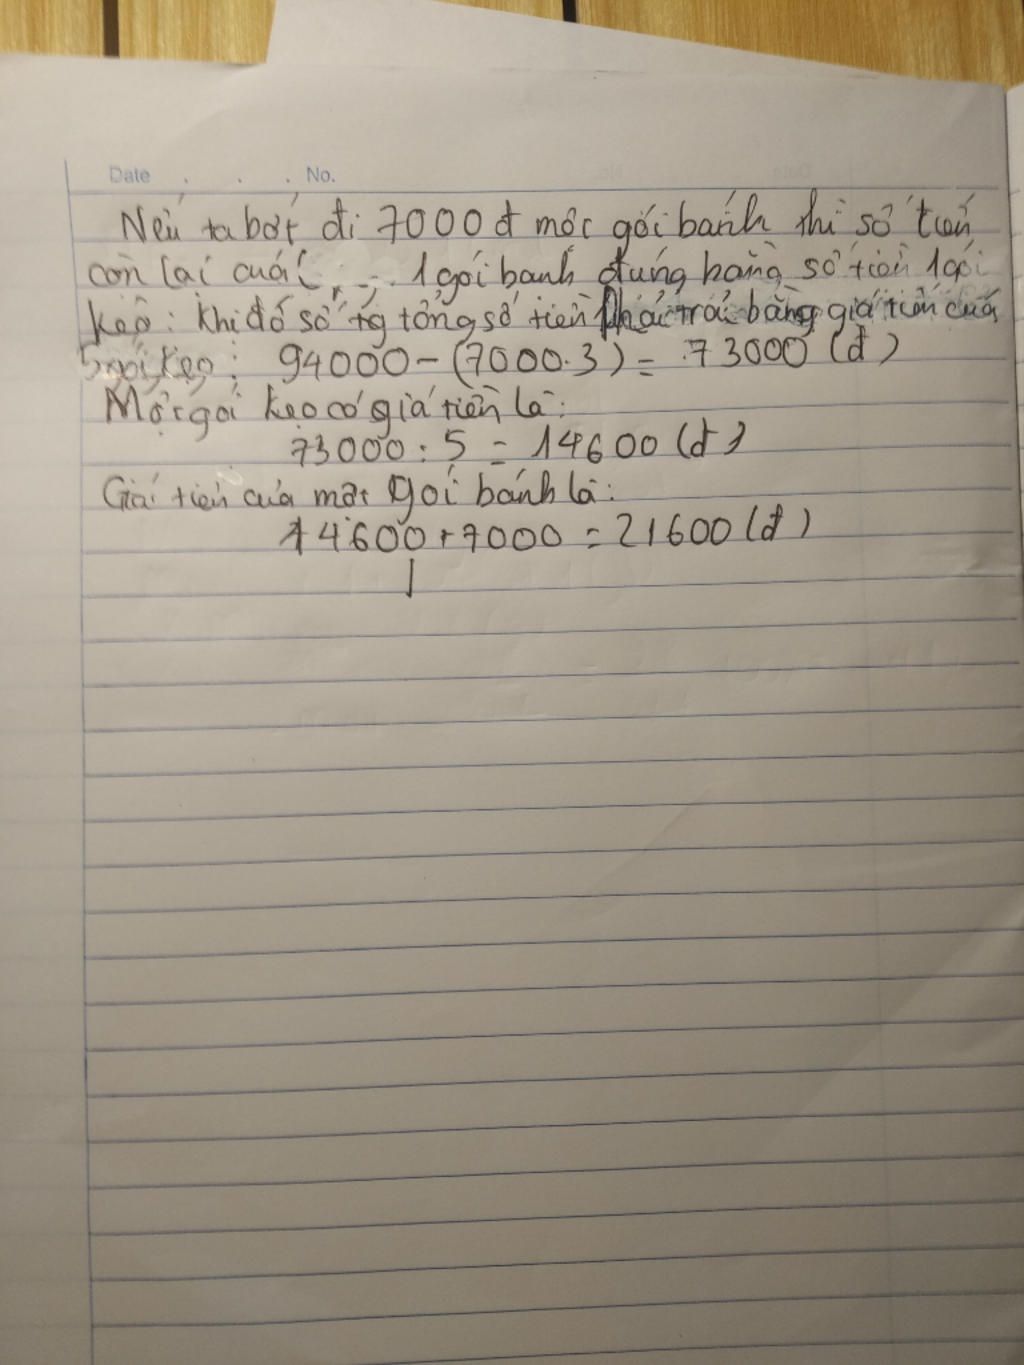 Date . . . No.
Nếu ta bớt đi 7000đ một gói bánh thì số tiền
còn lại của 1 gói bánh đúng bằng số tiền 1 gói
kẹo: khi đó số tg tổng số tiền phải trả bằng giá tiền của
5 gói kẹo: 94000-(7000.3) = 73000 (đ)
Một gói kẹo có giá tiền là:
73000 : 5 = 14600 (đ)
Giá tiền của một gói bánh là:
14600 + 7000 = 21600 (đ)